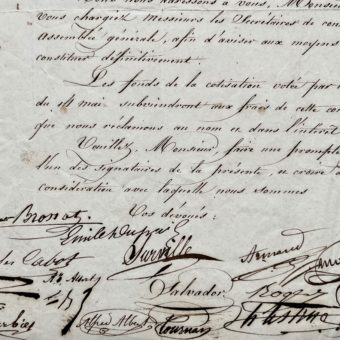 nous adressons à vous, Monsieur
vous chargiez messieurs les Secrétaires de con
assemblée générale, afin d'aviser aux moyens
constituer définitivement
Les fonds de la cotisation votée par
du 14 mai subviendront aux frais de cette con
que nous réclamons au nom et dans l'intérêt
Veuillez, Monsieur, faire une prompte
l'un des signataires de la présente, et croire à
considération avec laquelle nous sommes
Vos dévoués:
Brossat.
Emile Duprés
Surville
Armand
Cabot
Albert
Salvador
Alfred Albert
Tournan